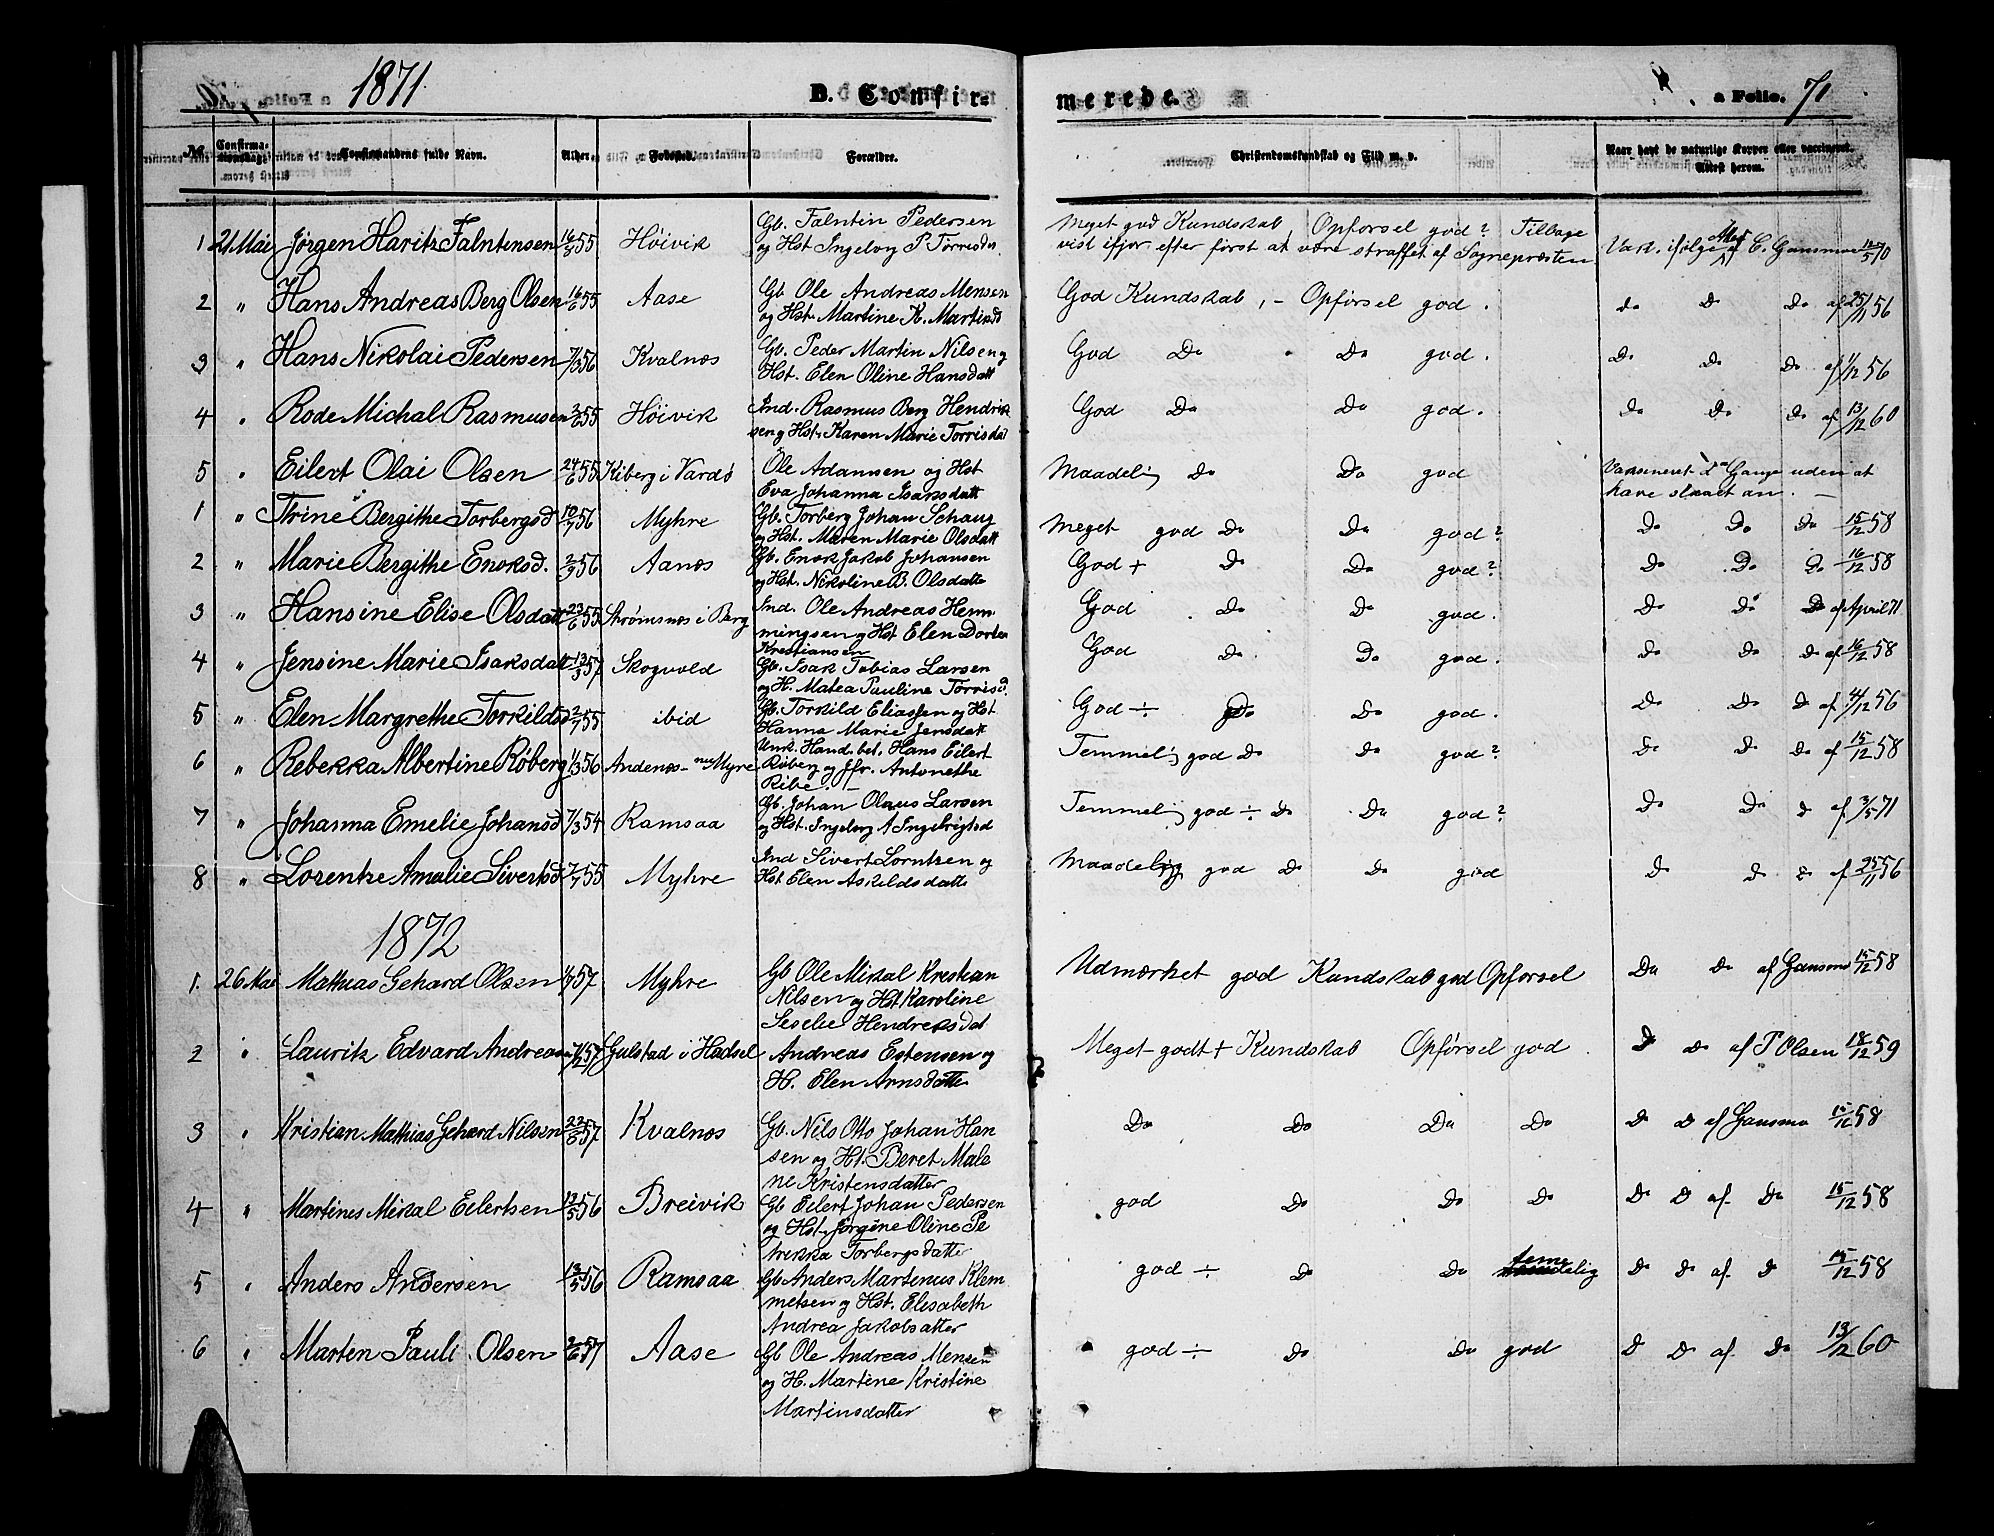 1871
B. Confir-
merede.
a Folio. 71
№
Confirma-
tionsdag.
Confirmandens fulde Navn.
Alder.
Fødested.
Forældre.
Christendomskundskab og Flid m. v.
Naar havt de naturlige Kopper eller vaccineret.
Attest herom.
1 21 Mai Jørgen Haritz Falntensen 16/3 55 Høivik Gb. Falntin Pedersen
og Hst Ingeborg P Torrisdtr.
Meget god Kundskab, Opførsel god? Tilbage
vist ifjor efter først at være straffet af Sognepræsten
Vak. ifølge Attest af C. Gansmoe 12/5 70
2 " Hans Andreas Berg Olsen 16/6 55 Aase Gb Ole Andreas Mensen
og Hst. Martine K. Martinsd
God Kundskab, - Opførsel god. Do Do Do af 25/11 56
3 " Hans Nikolai Pedersen 7/3 56 Kvalnæs Gb. Peder Martin Nilsen og
Hst. Elen Oline Hansdatt
God Do Do god. Do Do Do af 1/12 56
4 " Rode Michal Rasmusen 2/6 55 Høivik Ind. Rasmus Berg Hendrik
sen og Hst. Karen Marie Torrisdat
God Do Do god. Do Do Do af 13/12 60
5 " Eilert Olai Olsen 24/6 55 Kiberg i Vardø Ole Adamsen og Hst
Eva Johanna Isaksdatt
Maadelig Do Do god Vaksineret 2de Gange uden at
have slaaet an. —
1 " Trine Bergithe Torbergsd 10/7 56 Myhre Gb. Torberg Johan Schaug
og Hst. Maren Marie Olsdatt
Meget god Do Do god? Do Do Do 15/12 58
2 " Marie Bergithe Enoksd. 2/9 56 Aanæs Gb. Enok Jakob Johansen
og Hst. Nikoline B. Olsdatte
God + Do Do god? Do Do Do 16/12 58
3 " Hansine Elise Olsdatt 23/6 55 Strømsnæs i Berg Ind. Ole Andreas Hem
mingsen og Hst Elen Dortea
Krestiansen
God Do Do god. Do Do Do af April 71
4 " Jensine Marie Isaksdatt 13/3 57 Skogvold Gb. Isak Tobias Larsen
og H. Matea Pauline Torrisd.
God Do Do god. Do Do Do af 16/12 58
5 " Elen Margrethe Torkildsd 2/7 55 ibid Gb. Torkild Eliassen og Hst
Hanna Marie Jensdatt
God ÷ Do Do god. Do Do Do af 4/12 56
6 " Rebekka Albertine Røberg 1/3 56 Andenæs - nu Myre Unk. Handsbet. Hans Eilert
Røberg og Jfr. Antonethe
Ribe. —
Temmelig god Do Do god? Do Do Do af 15/12 58
7 " Johanna Emelie Johansd 7/3 54 Ramsaa Gb. Johan Olaus Larsen
og Hst. Ingeborg A Ingebrigtsd
Temmelig god ÷ Do Do god? Do Do D af 3/5 71
8 " Lorentze Amalie Sivertsd 2/7 55 Myhre Ind Sivert Lorntzen og
Hst Elen Askildsdatte
Maadelig god Do Do god Do Do Do af 25/11 56
1872
1. 26 Mai Mathias Gehard Olsen 1/7 57 Myhre Gb Ole Mikal Krestian
Nilsen og Hst Karoline
Seselie Hendreksdat
Udmærket god Kundskab god Opførsel Do Do af Gansmo 15/12 58
2 " Lauritz Edvard Andreasen 7/12 57 Gulstad i Hadsel Andreas Estensen og
H. Elen Arnsdatte
Meget godt + Kundskab Opførsel god D Do af P Olsen 18/12 59
3 " Kristian Mathias Gehard Nilsen 22/6 57 Kvalnæs Gb. Nils Otto Johan Han
sen og Ht. Beret Male
ne Kristensdatter
Do Do Do Do D D af Gansmo 15/12 58
4 " Martines Mikal Eilertsen 13/5 56 Breivik Gb Eilert Johan Pedersen
og Hst. Jørgine Oline Pe
trikka Torbergsdatter
god Do Do Do D D af Do 15/12 58
5 " Anders Andersen 13/5 56 Ramsaa Gb Anders Martenus Klem
metsen og Hst. Elisabeth
Andrea Jakobsatter
god ÷ Do Do temmelig D D af D 15/12 58
6 " Marten Pauli Olsen 2/6 57 Aase Gb Ole Andreas Mensen
og H. Martine Kristine
Martinsdatter
god ÷ Do Do god D D af Do 13/12 60